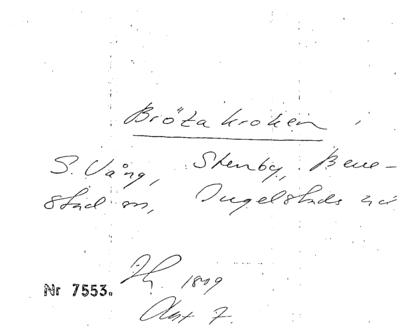 Brötakroken
S. Vång, Stenby, Bene-
stad sn, Ingelstads hd
Nr 7553.
1809
Akt 7.